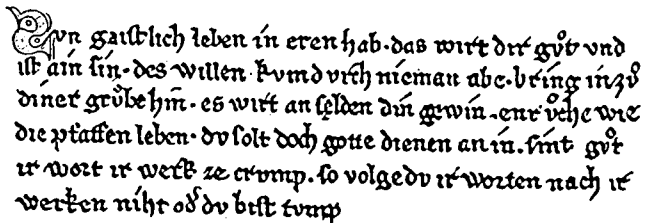 Svn gaistlich leben in eren hab·das wirt dir gvͦt vnd
ist ain sin·des willen kvmdvrch nieman abe·bring inzvͦ
diner grvͦbe hin̄·es wirt an sęlden din gewin·enrvͦche wie
die pfaffen leben·dv solt doch gotte dienen an in·sint gvͦt
ir wort ir werk ze crvmp·so volgedv ir worten nach ir
werken niht od̛ dv bist tvmp